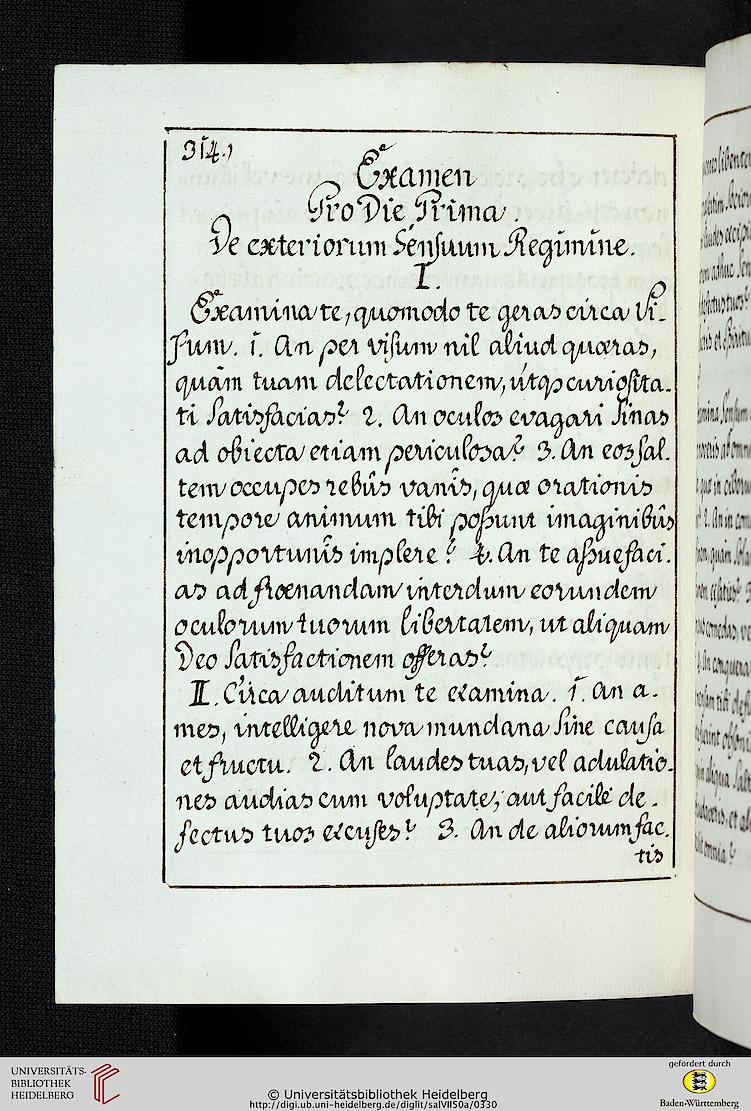 314.)
Examen
Pro Die Prima.
De exteriorum Sensuum Regimine.
I.
Examina te, quomodo te geras circa Vi-
sum. 1. An per visum nil aliud quæras,
quàm tuam delectationem, útqꝫ curiosita-
ti satisfacias? 2. An oculos evagari sinas
ad obiecta etiam periculosa? 3. An eos sal-
tem occupes rebûs vanîs, quæ orationis
tempore animum tibi possunt imaginibûs
inopportunîs implere? 4. An te assuefaci-
as ad frœnandam interdum eorundem
oculorum tuorum libertatem, ut aliquam
Deo satisfactionem offeras?
II. Circa auditum te examina. 1. An a-
mes, intelligere nova mundana sine causa
et fructu. 2. An laudes tuas, vel adulatio-
nes audias cum voluptate, aut facilè de-
fectus tuos excuses? 3. An de aliorum fac-
tis
UNIVERSITÄTS-
BIBLIOTHEK
HEIDELBERG
© Universitätsbibliothek Heidelberg
http://digi.ub.uni-heidelberg.de/diglit/salVII50a/0330
gefördert durch
Baden-Württemberg